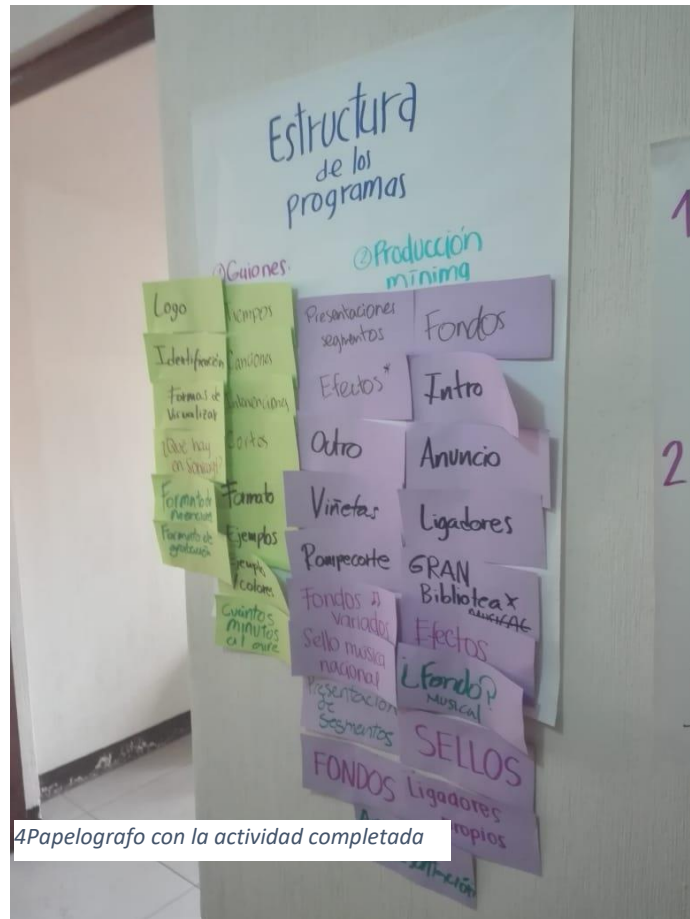 Estructura
de los
programas
①Guiones.
②Producción
mínima
Logo
Identificación
Formas de
visualizar
¿Qué hay
en
Formato de
Formato de
grabación
Tiempos
Canciones
Cortes
Formato
Ejemplos
Ejemplo
/colores
Cuántos
minutos
al aire
Presentaciones
segmentos
Efectos*
Outro
Viñetas
Rompecorte
Fondos ♫
variados
Sello música
nacional
Presentación
de
Segmentos
FONDOS
Fondos
Intro
Anuncio
Ligadores
GRAN
Biblioteca X
MUSICAL
Efectos
¿Fondo?
MUSICAL
SELLOS
Ligadores
propios
1
2
4Papelografo con la actividad completada